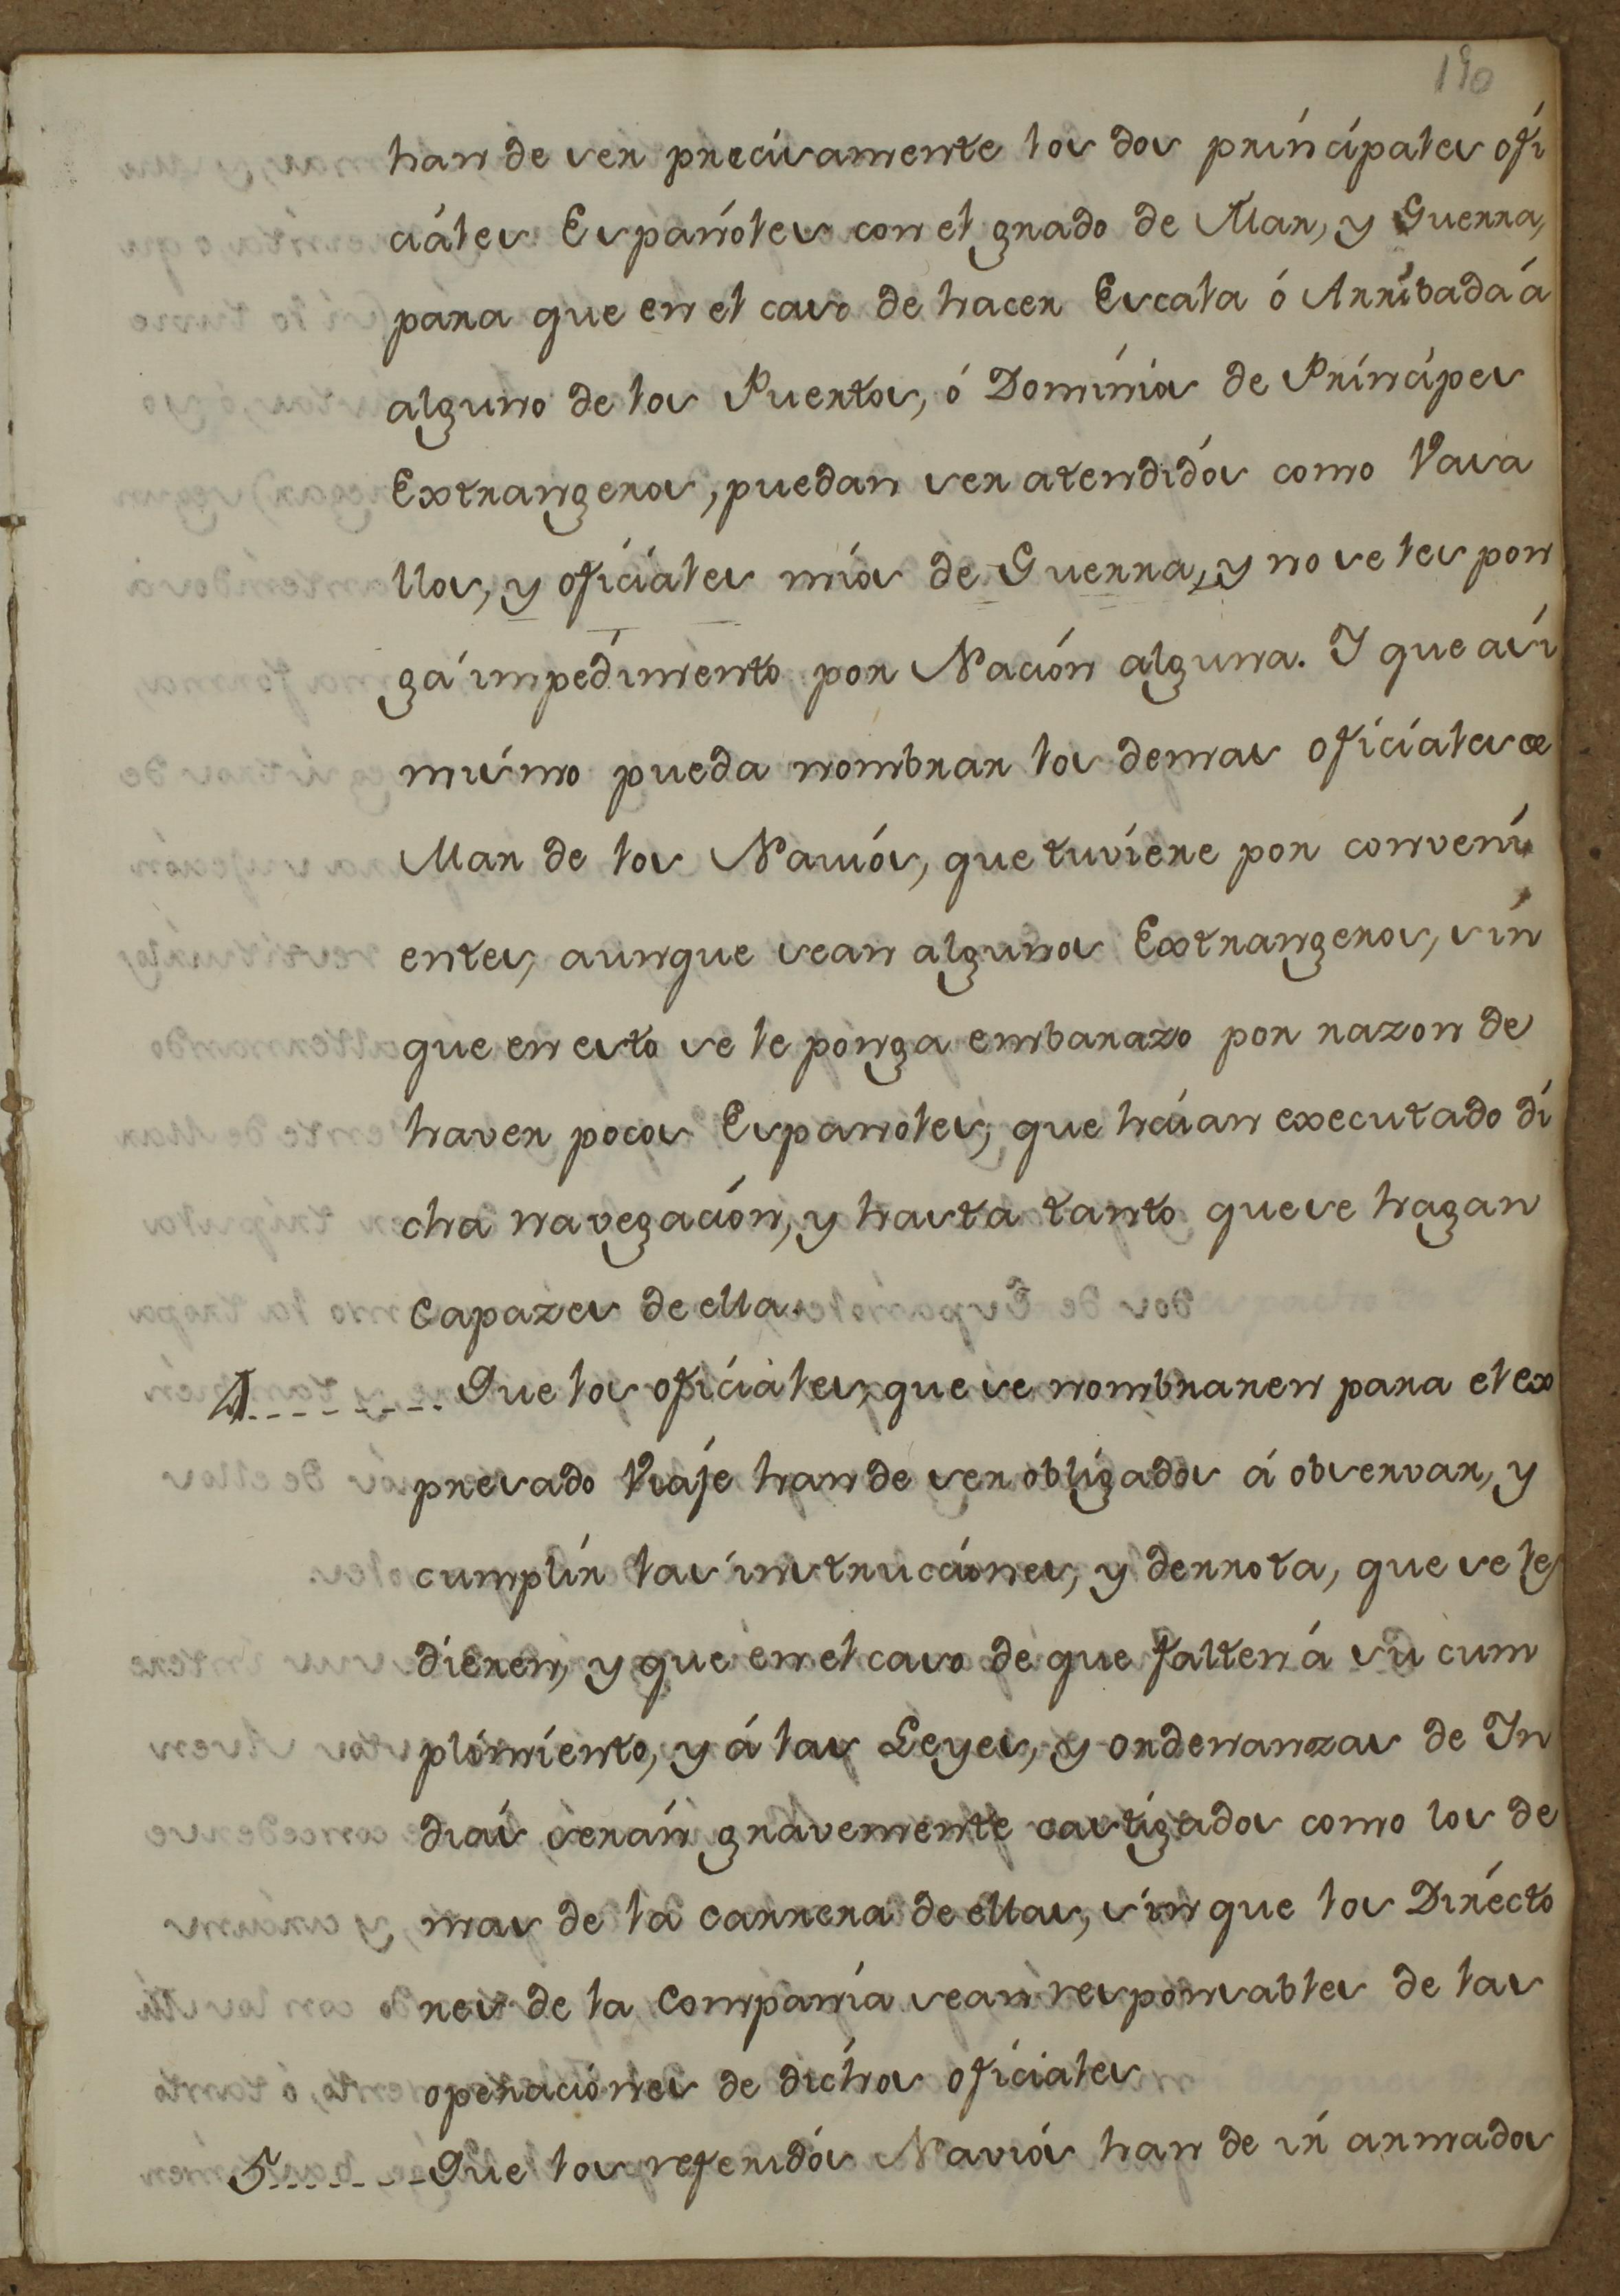 190
han de ser precisamente los dos principales ofi
ciales Españoles con el grado de Mar, y Guerra,
para que en el caso de hacer Escala ó Arribada á
alguno de los Puertos, ó Dominios de Principes
Extrangeros, puedan ser atendidos como Vasa
llos, y oficiales mios de Guerra, y no se les pon
ga impedimento por Nación alguna. I que asi
mismo pueda nombrar los demas oficiales de
Mar de los Navios, que tuviere por conveni
entes, aunque sean algunos Extrangeros, sin
que en esto se le ponga embarazo por razon de
haver pocos Españoles, que haian executado di
cha navegación, y hasta tanto que se hagan
Capazes de ella.
4......... Que los oficiales, que se nombraren para el ex
presado Viaje han de ser obligados á observar, y
cumplir las instrucciones, y derrota, que se les
dieren, y que en el caso de que falten á su cum
plimiento, y á las Leyes, y ordenanzas de In
dias serán gravemente castigados como los de
mas de la carrera de ellas, sin que los Directo
res de la Compañia sean responsables de las
operaciónes de dichos oficiales
5......... Que los referidos Navios han de ir armados